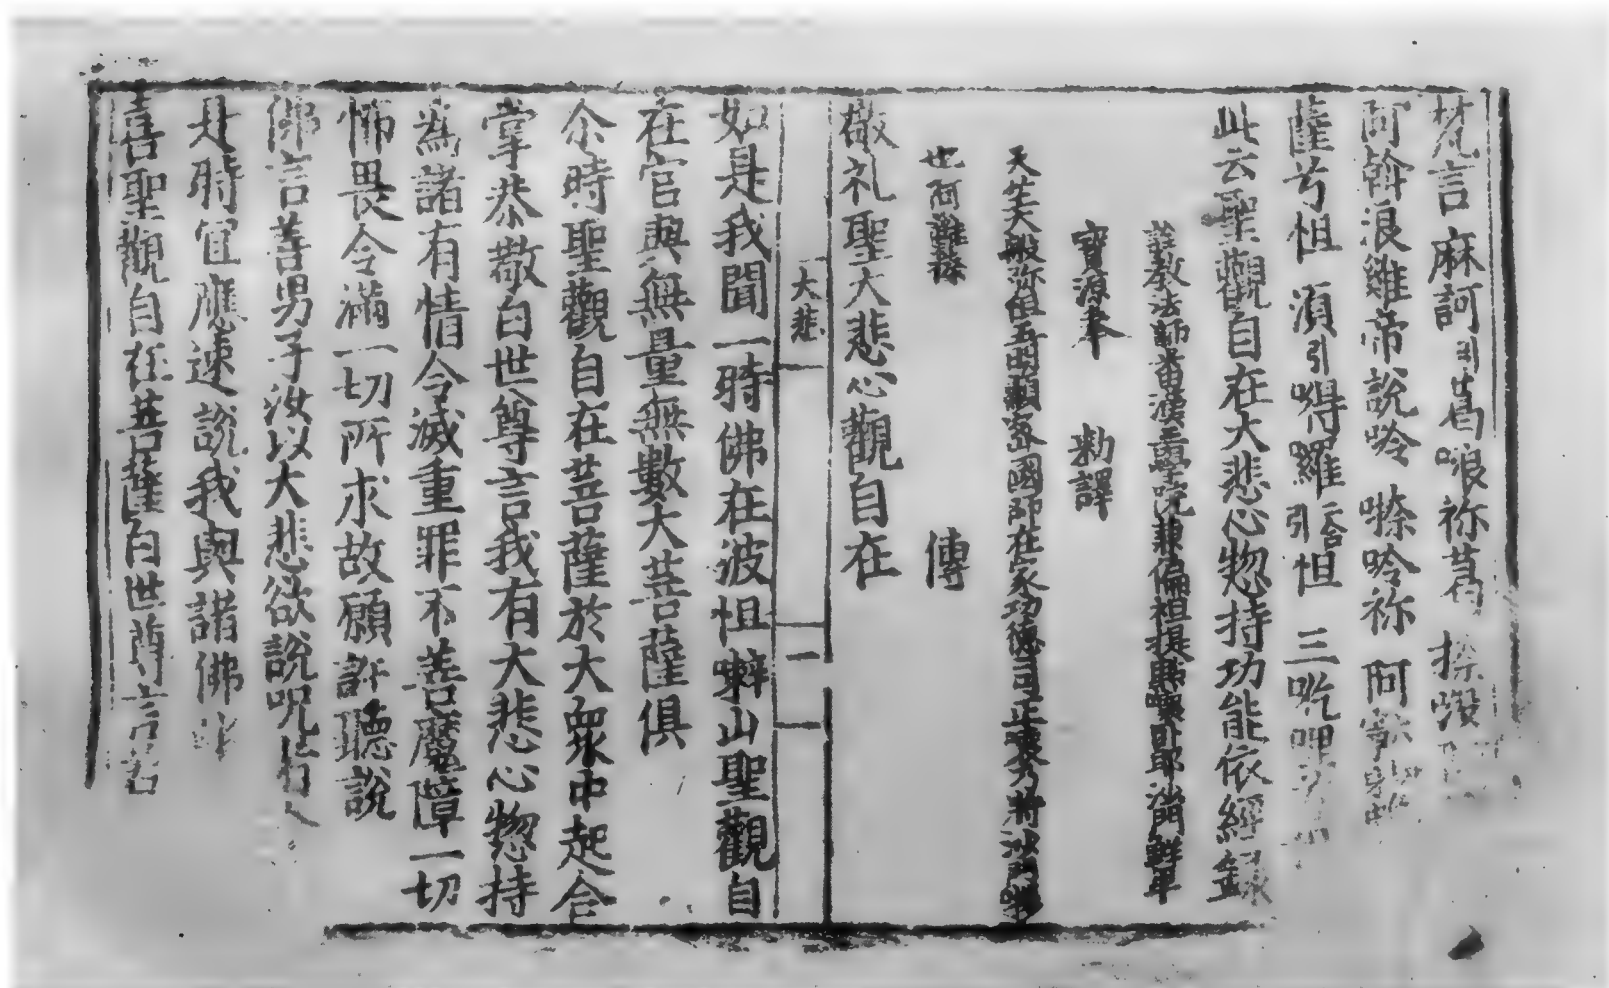 梵言 麻訶引葛㘄祢葛 捺
阿斡浪雞帝說呤 㗚呤祢 阿
薩兮怛 湏引嘚羅二合引怛 三吃哩
此云聖觀自在大悲心惣持功能依經録
詮教法師番漢三學院兼偏袒提點嚷卧耶沙門鮮卑
寶源奉 勑譯
天竺大般弥怛五明顯密國師在家功德司正嚷乃將沙門
也阿難捺 傳
敬礼聖大悲心觀自在
大悲 二
如是我聞一時佛在波怛㘑山聖觀自
在宮與無量無數大菩薩俱
尒時聖觀自在菩薩於大衆中起合
掌恭敬白世尊言我有大悲心惣持
為諸有情令滅重罪不善魔障一切
怖畏令滿一切所求故願許聽說
佛言善男子汝以大悲欲說呪
是時宜應速說我與諸佛
喜聖觀自在菩薩白世尊言若